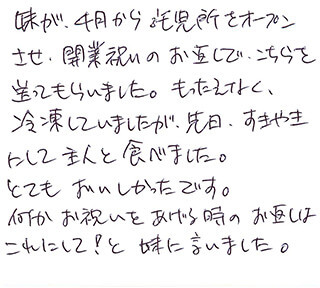 妹が、4月から託児所をオープン
させ、開業祝いのお返しで、こちらを
送ってもらいました。もったえなく、
冷凍していましたが、先日、すきやき
にして主人と食べました。
とてもおいしかったです。
何かお祝いをあげる時のお返しは
これにして!と妹に言いました。